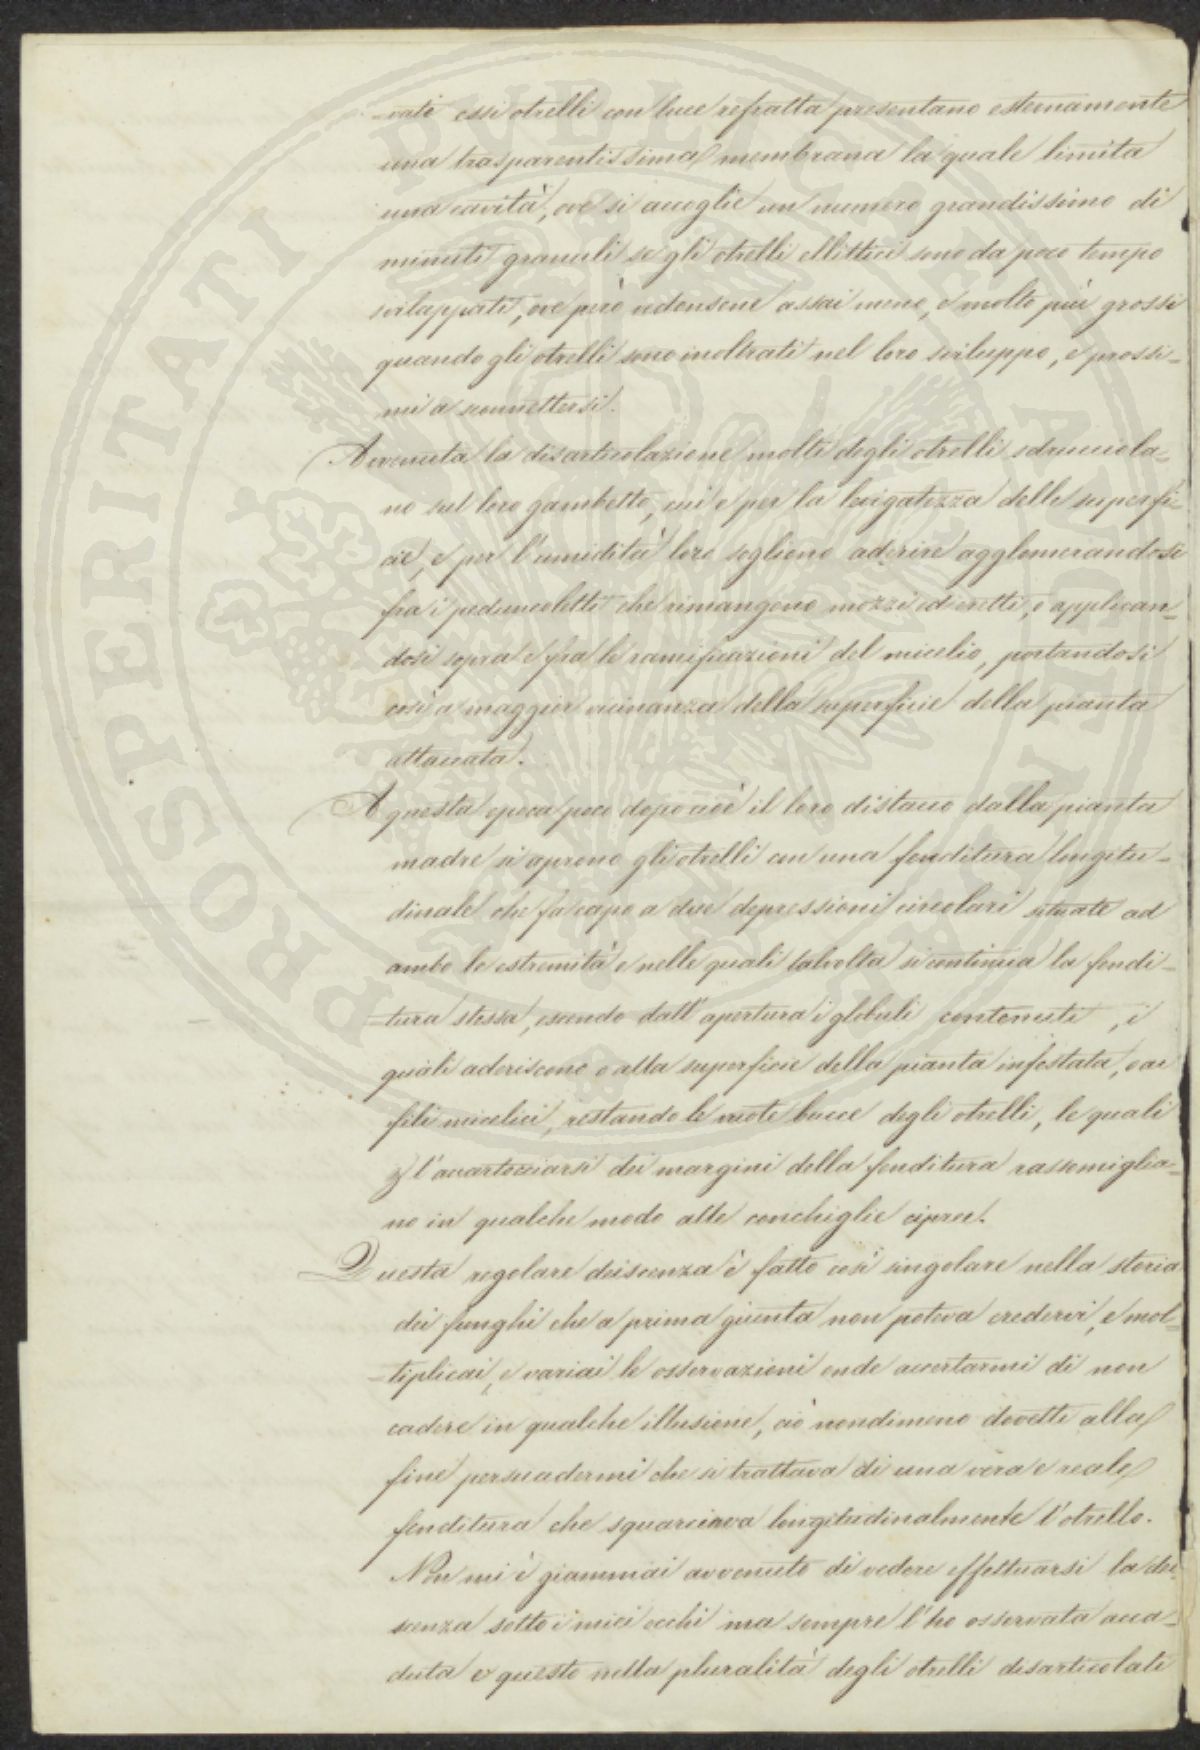 -vati essi otrelli con luce refratta presentano esternamente
una trasparentissima membrana la quale limita
una cavità, ove si accoglie un numero grandissimo di
minuti granuli se gli otrelli ellittici sono da poco tempo
sviluppati, ove però vedonsene assai meno, e molto più grossi
quando gli otrelli sono inoltrati nel loro sviluppo, e prossi-
mi a sconnettersi.
Avvenuta la disarticolazione molti degli otrelli sdrucciola-
no sul loro gambetto, cui e per la levigatezza delle superfi-
cie, e per l'umidità loro sogliono aderire agglomerandosi
fra i peduncoletti che rimangono mozzi ed eretti, e applican-
dosi sopra e fra le ramificazioni del micelio, portandosi
così a maggior vicinanza della superficie della pianta
attaccata.
A questa epoca poco dopo cioè il loro distacco dalla pianta
madre si aprono gli otrelli con una fenditura longitu-
dinale che fa capo a due depressioni circolari situate ad
ambo le estremità e nelle quali talvolta si continua la fendi-
-tura stessa, escendo dall'apertura i globuli contenuti, i
quali aderiscono o alla superficie della pianta infestata, o ai
fili micelici, restando le vuote bucce degli otrelli, le quali
p l'accartocciarsi dei margini della fenditura rassomiglia-
no in qualche modo alle conchiglie cipree.
Questa regolare deiscenza è fatto così singolare nella storia
dei funghi che a prima giunta non poteva credervi, e mol-
-tiplicai, e variai le osservazioni onde accertarmi di non
cadere in qualche illusione, ciò nondimeno dovetti alla
fine persuadermi che si trattava di una vera e reale
fenditura che squarciava longitudinalmente l'otrello.
Non mi è giammai avvenuto di vedere effettuarsi la dei-
scenza sotto i miei occhi ma sempre l'ho osservata acca-
duta e questo nella pluralità degli otrelli disarticolati
PROSPERITATI PUBLICAE AUGENDAE